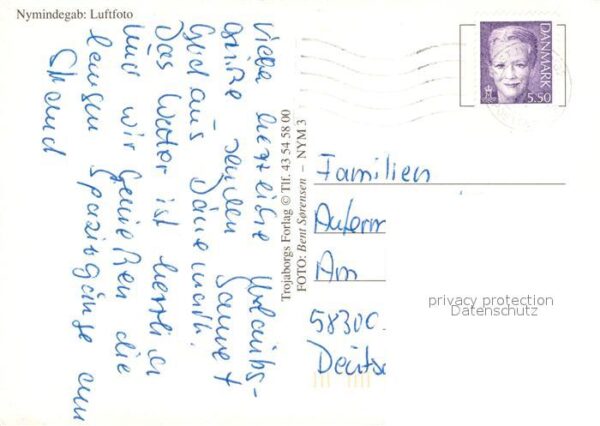 Nymindegab: Luftfoto
Viele herzliche Urlaubs-
grüße senden
aus Dänemark.
Das Wetter ist herrlich
und wir genießen die
langen Spaziergänge am
Strand
Trojaborgs Forlag © Tlf. 43 54 58 00
FOTO: Bent Sørensen – NYM 3
DANMARK
5.50
Familien
Am
58300
Deutsc
privacy protection
Datenschutz